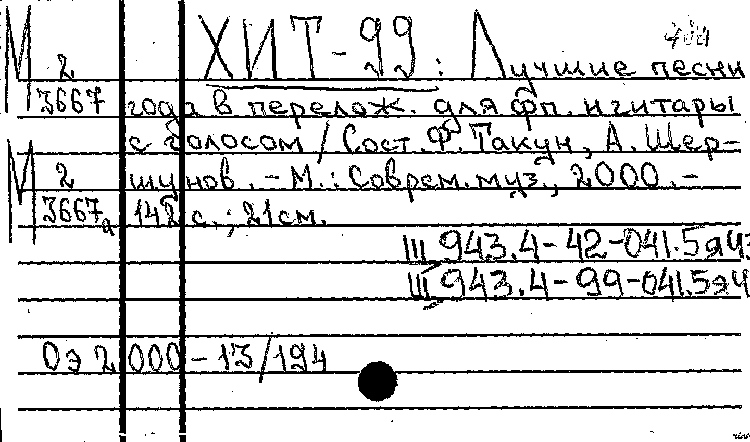 М 2 ХИТ-99: Лучшие песни
3667 года в перелож. для фп. и гитары
с голосом / Сост. Ф. Такун, А. Шер-
М 2 шунов. - М.: Соврем. муз., 2000. -
3667а 142 с.; 21 см.
Щ 943.4-42-041.5я43
Щ 943.4-99-041.5я4
Оэ 2000-13/194